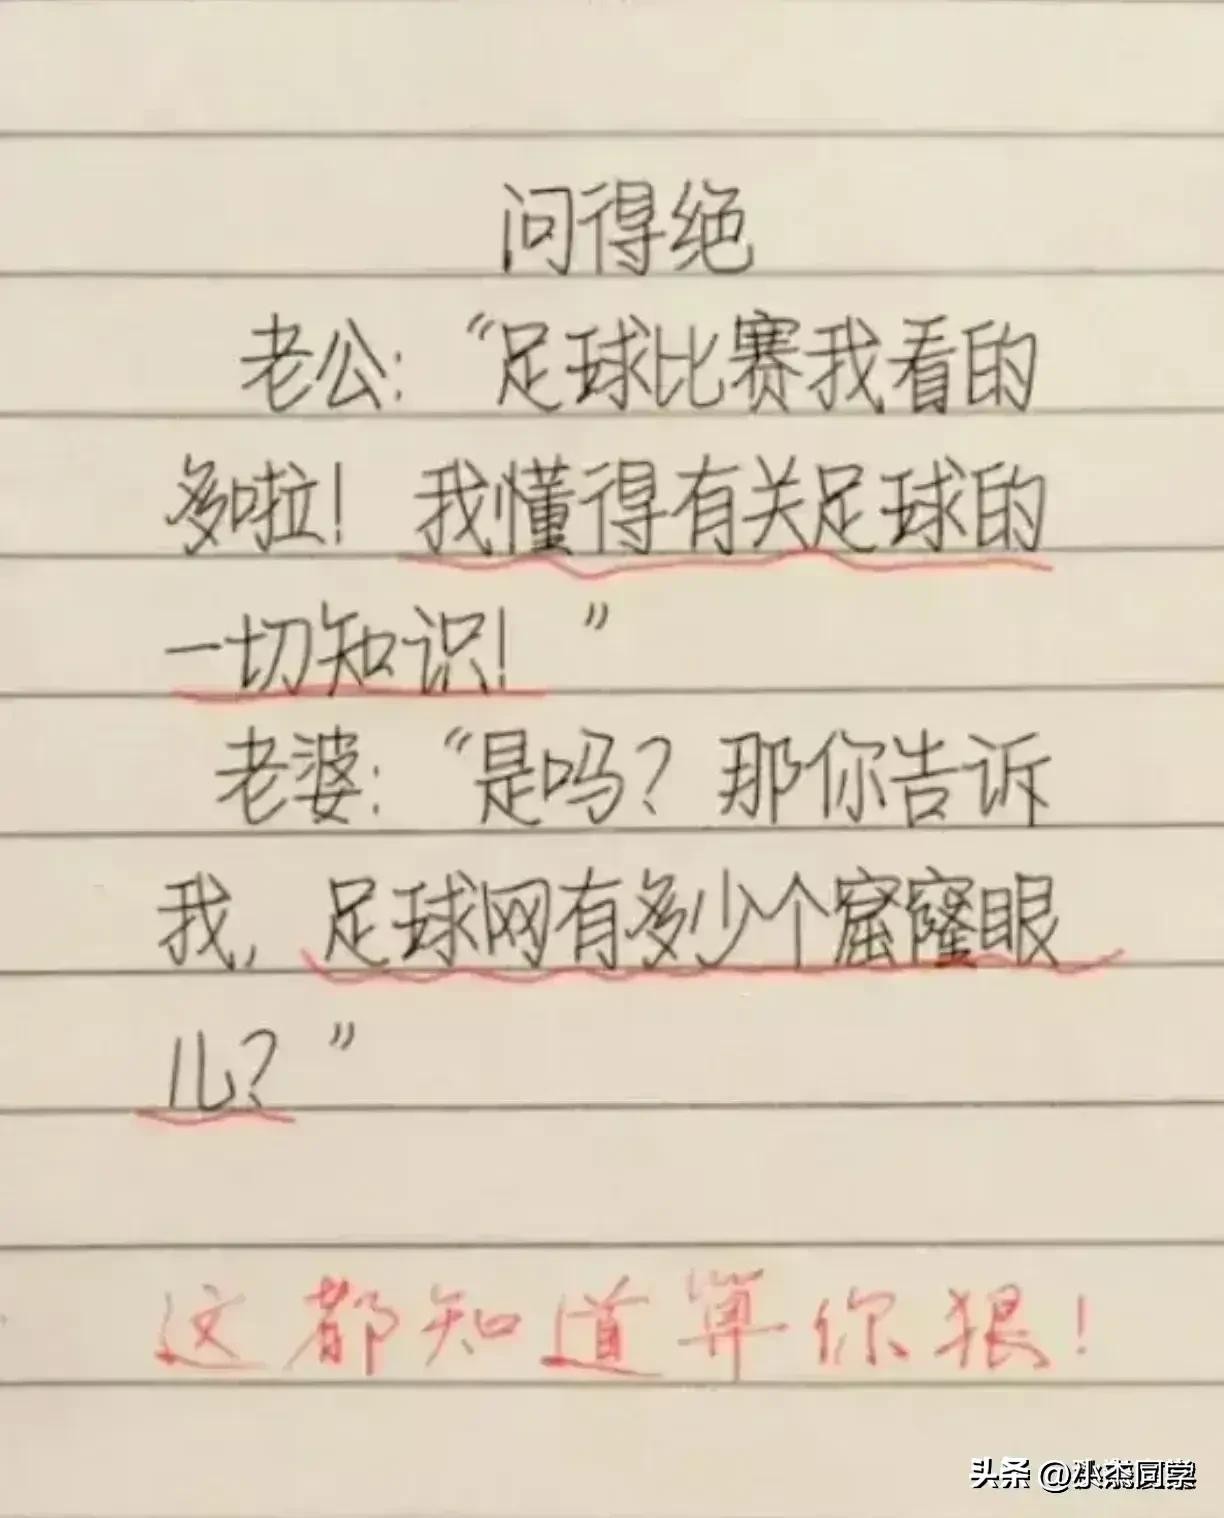 问得绝
老公：“足球比赛我看的
多啦！我懂得有关足球的
一切知识！”
老婆：“是吗？那你告诉
我，足球网有多少个窟窿眼
儿？”
这都知道算你狠！
头条 @